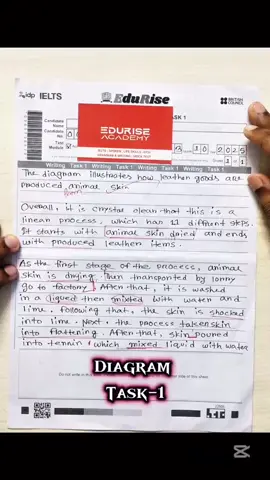 idp IELTS
EduRise
BRITISH COUNCIL
TASK 1
Candidate Name
Candidate
EDURISE
ACADEMY
Test
Module
10 2025
Writing Task 1 Writing Task 1 Writing Task 1 Writing Task 1
The diagram illustrates how leather goods are
produced animal skin
from
Overall, it is crystal clear that this is a
linear process, which has 11 diffrent steps.
It starts with animal skin dried and ends
with produced leather items.
As the first stage of the process, animal
skin is drying. Then transported by lorry
go to factory. After that, it is washed
in a liqued then mixted with water and
lime. Following that, the skin is shocked
into lime. Next, the process taken skin
into flattening. After that, skin poured
into tennin, which mixed liquid with water
DIAGRAM
TASK-1
Do not write
CapCut